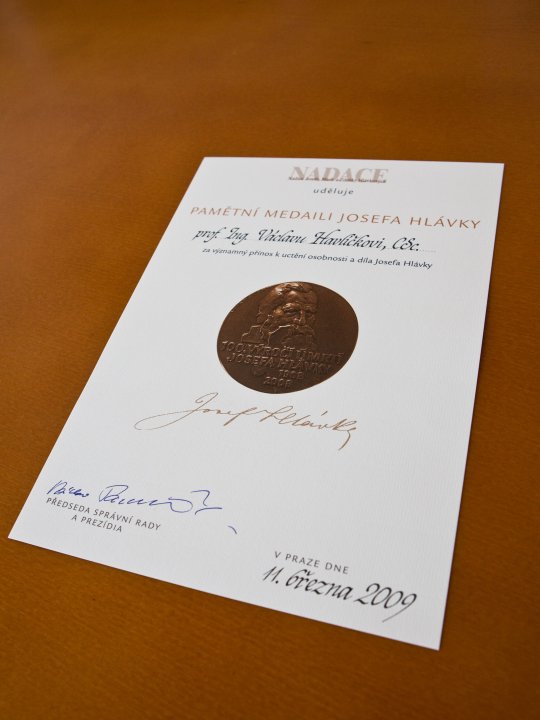 NADACE
uděluje
PAMĚTNÍ MEDAILI JOSEFA HLÁVKY
prof. Ing. Václavu Havlíčkovi, CSc.
za významný přínos k uctění osobnosti a díla Josefa Hlávky
100. VÝROČÍ ÚMRTÍ
JOSEFA HLÁVKY
1908
2008
Josef Hlávka
PŘEDSEDA SPRÁVNÍ RADY
A PREZÍDIA
V PRAZE DNE
11. března 2009